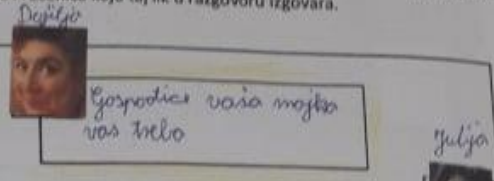 koje taj lik u razgovoru izgovara.
Dojilja
Gospodice vaša majka
vas treba
Julija